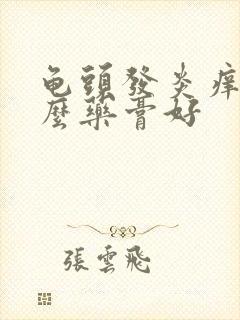 龟頭發炎痒
麼藥膏好
張雲飛